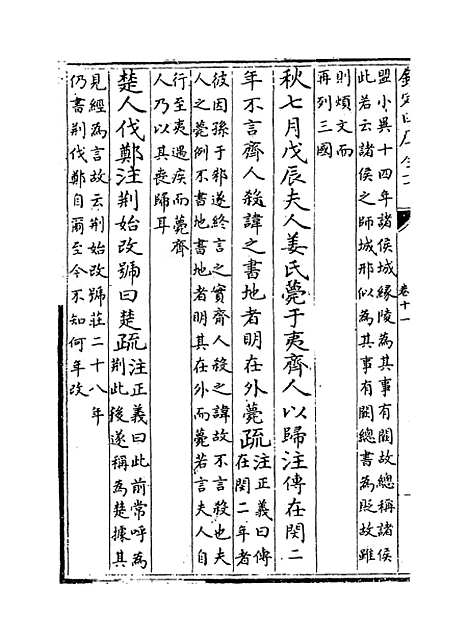 欽定四庫全書
卷十一
盟小異十四年諸侯城緣陵為其事有闕故總稱諸侯
此若云諸侯之師城邢似為其事有闕總書為貶故雖
則煩文而
再列三國
秋七月戊辰夫人姜氏薨于夷齊人以歸注傳在閔二
年不言齊人殺諱之書地者明在外薨疏
注正義曰傳
在閔二年者
彼因孫于邾遂終言之實齊人殺之諱故不言殺也夫
人之薨例不書地書地者明其在外而薨若言夫人自
行至夷遇疾而薨齊
人乃以其喪歸耳
楚人伐鄭注荆始改號曰楚疏
注正義曰此前常呼為
荆此後遂稱為楚據其
見經為言故云荆始改號莊二十八年
仍書荆伐鄭自爾至今不知何年改